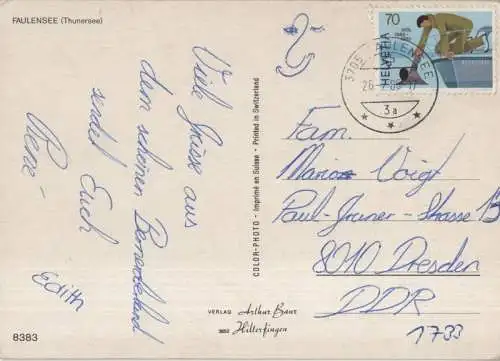 FAULENSEE (Thunersee)
Viele Grüsse aus
dem schönen Berneroberland
sendet Euch
Edith
8383
COLOR-PHOTO - Imprimé en Suisse - Printed in Switzerland
VERLAG Arthur Baur
3652 Hilterfingen
70
HELVETIA
3705 FAULENSEE
3a
Fam.
Mario Voigt
Paul-Gruner-Strasse 13
8010 Dresden
DDR
1733